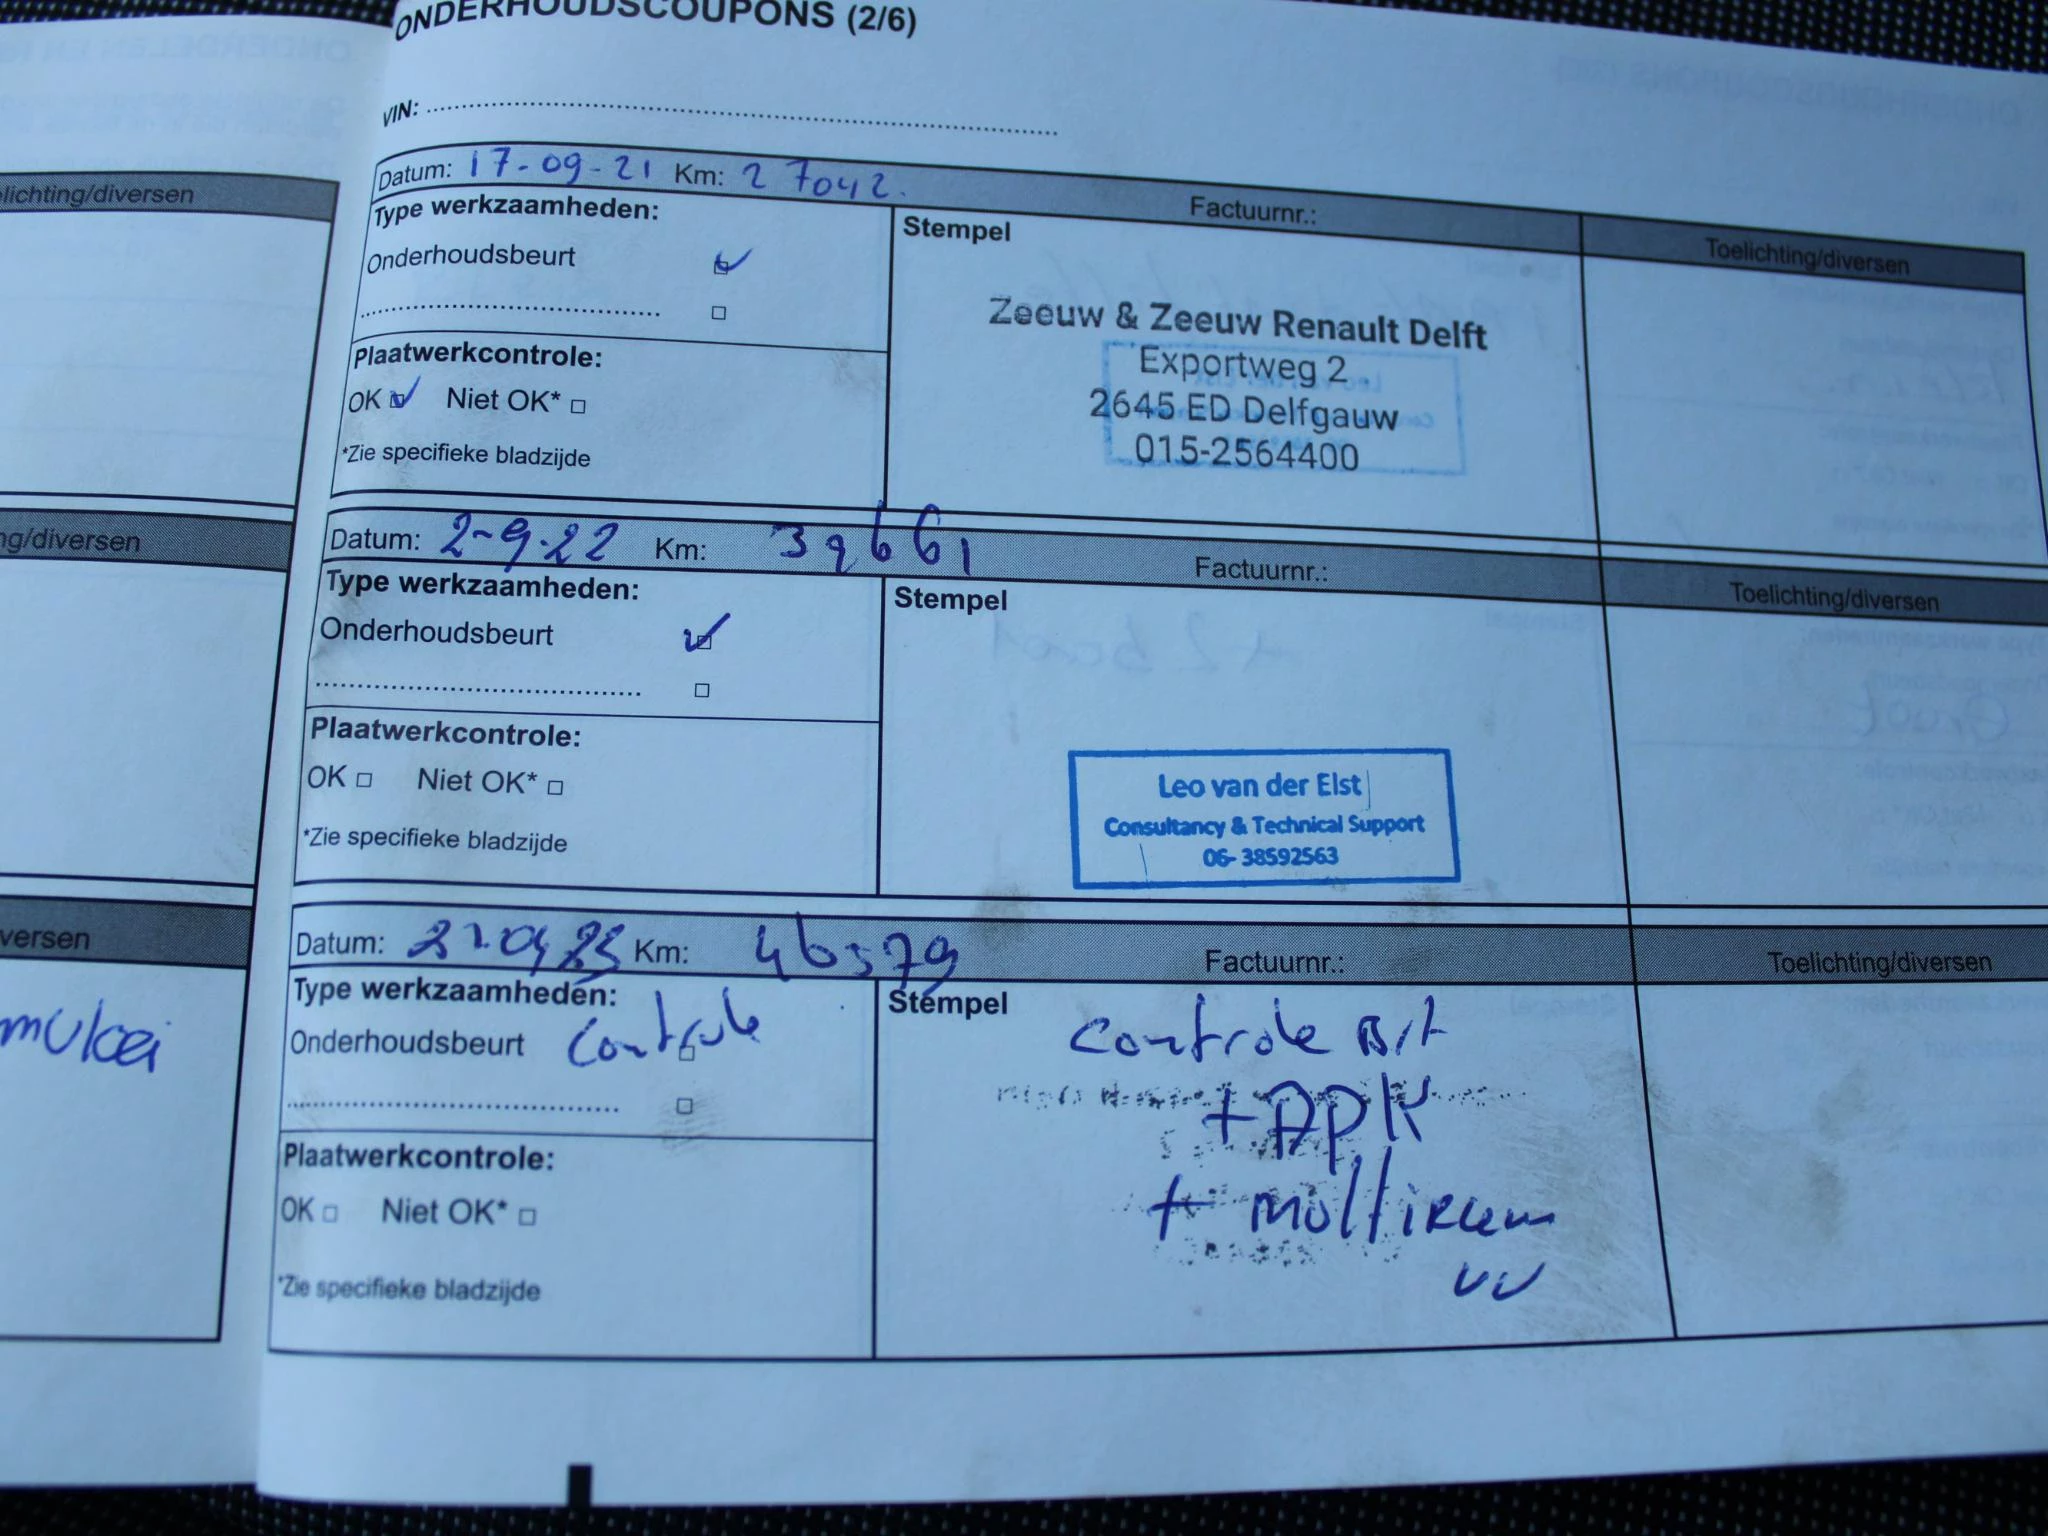 ONDERHOUDSCOUPONS (2/6)
VIN:
Datum: 17-09-21 Km: 27042. Factuurnr.:
Toelichting/diversen
Type werkzaamheden:
Onderhoudsbeurt
Plaatwerkcontrole:
OK Niet OK*
*Zie specifieke bladzijde
Stempel
Zeeuw & Zeeuw Renault Delft
Exportweg 2
2645 ED Delfgauw
015-2564400
elichting/diversen
Datum: 2-9-22 Km: 39661 Factuurnr.:
Toelichting/diversen
Type werkzaamheden:
Onderhoudsbeurt
Plaatwerkcontrole:
OK Niet OK*
*Zie specifieke bladzijde
Stempel
Leo van der Elst
Consultancy & Technical Support
06-38592563
ng/diversen
Datum: Km: 46579 Factuurnr.:
Toelichting/diversen
Type werkzaamheden:
Onderhoudsbeurt Controle
Plaatwerkcontrole:
OK Niet OK*
*Zie specifieke bladzijde
Stempel
Controle
+ APK
+ multiriem
versen